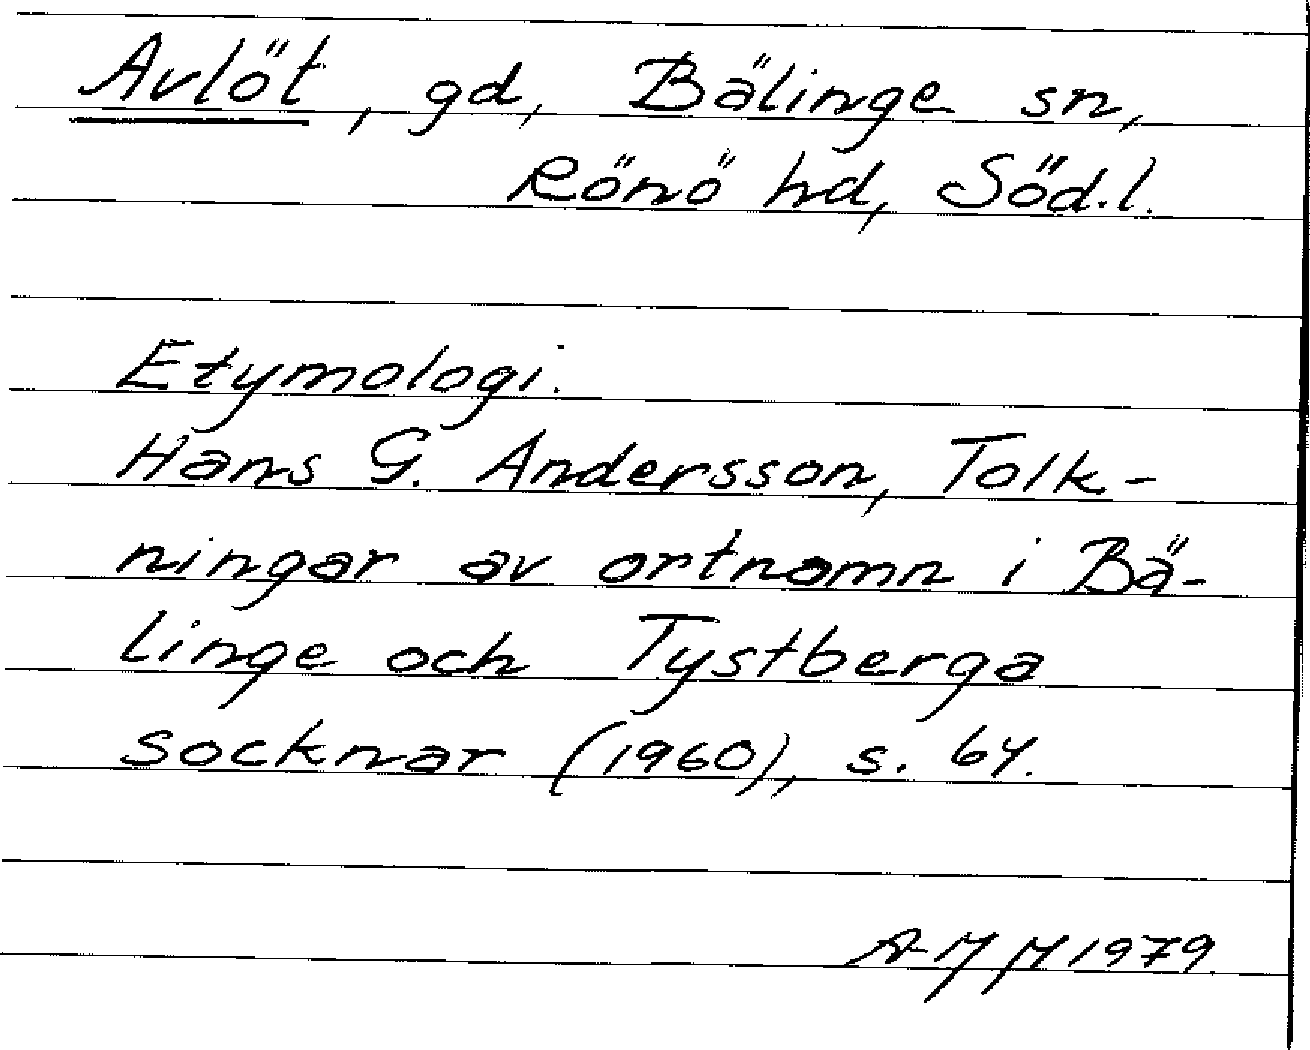 Avlöt, gd, Bälinge sn,
Rönö hd, Söd.l.
Etymologi.
Hans G. Andersson, Tolk-
ningar av ortnamn i Bä-
linge och Tystberga
socknar (1960), s. 64.
1979